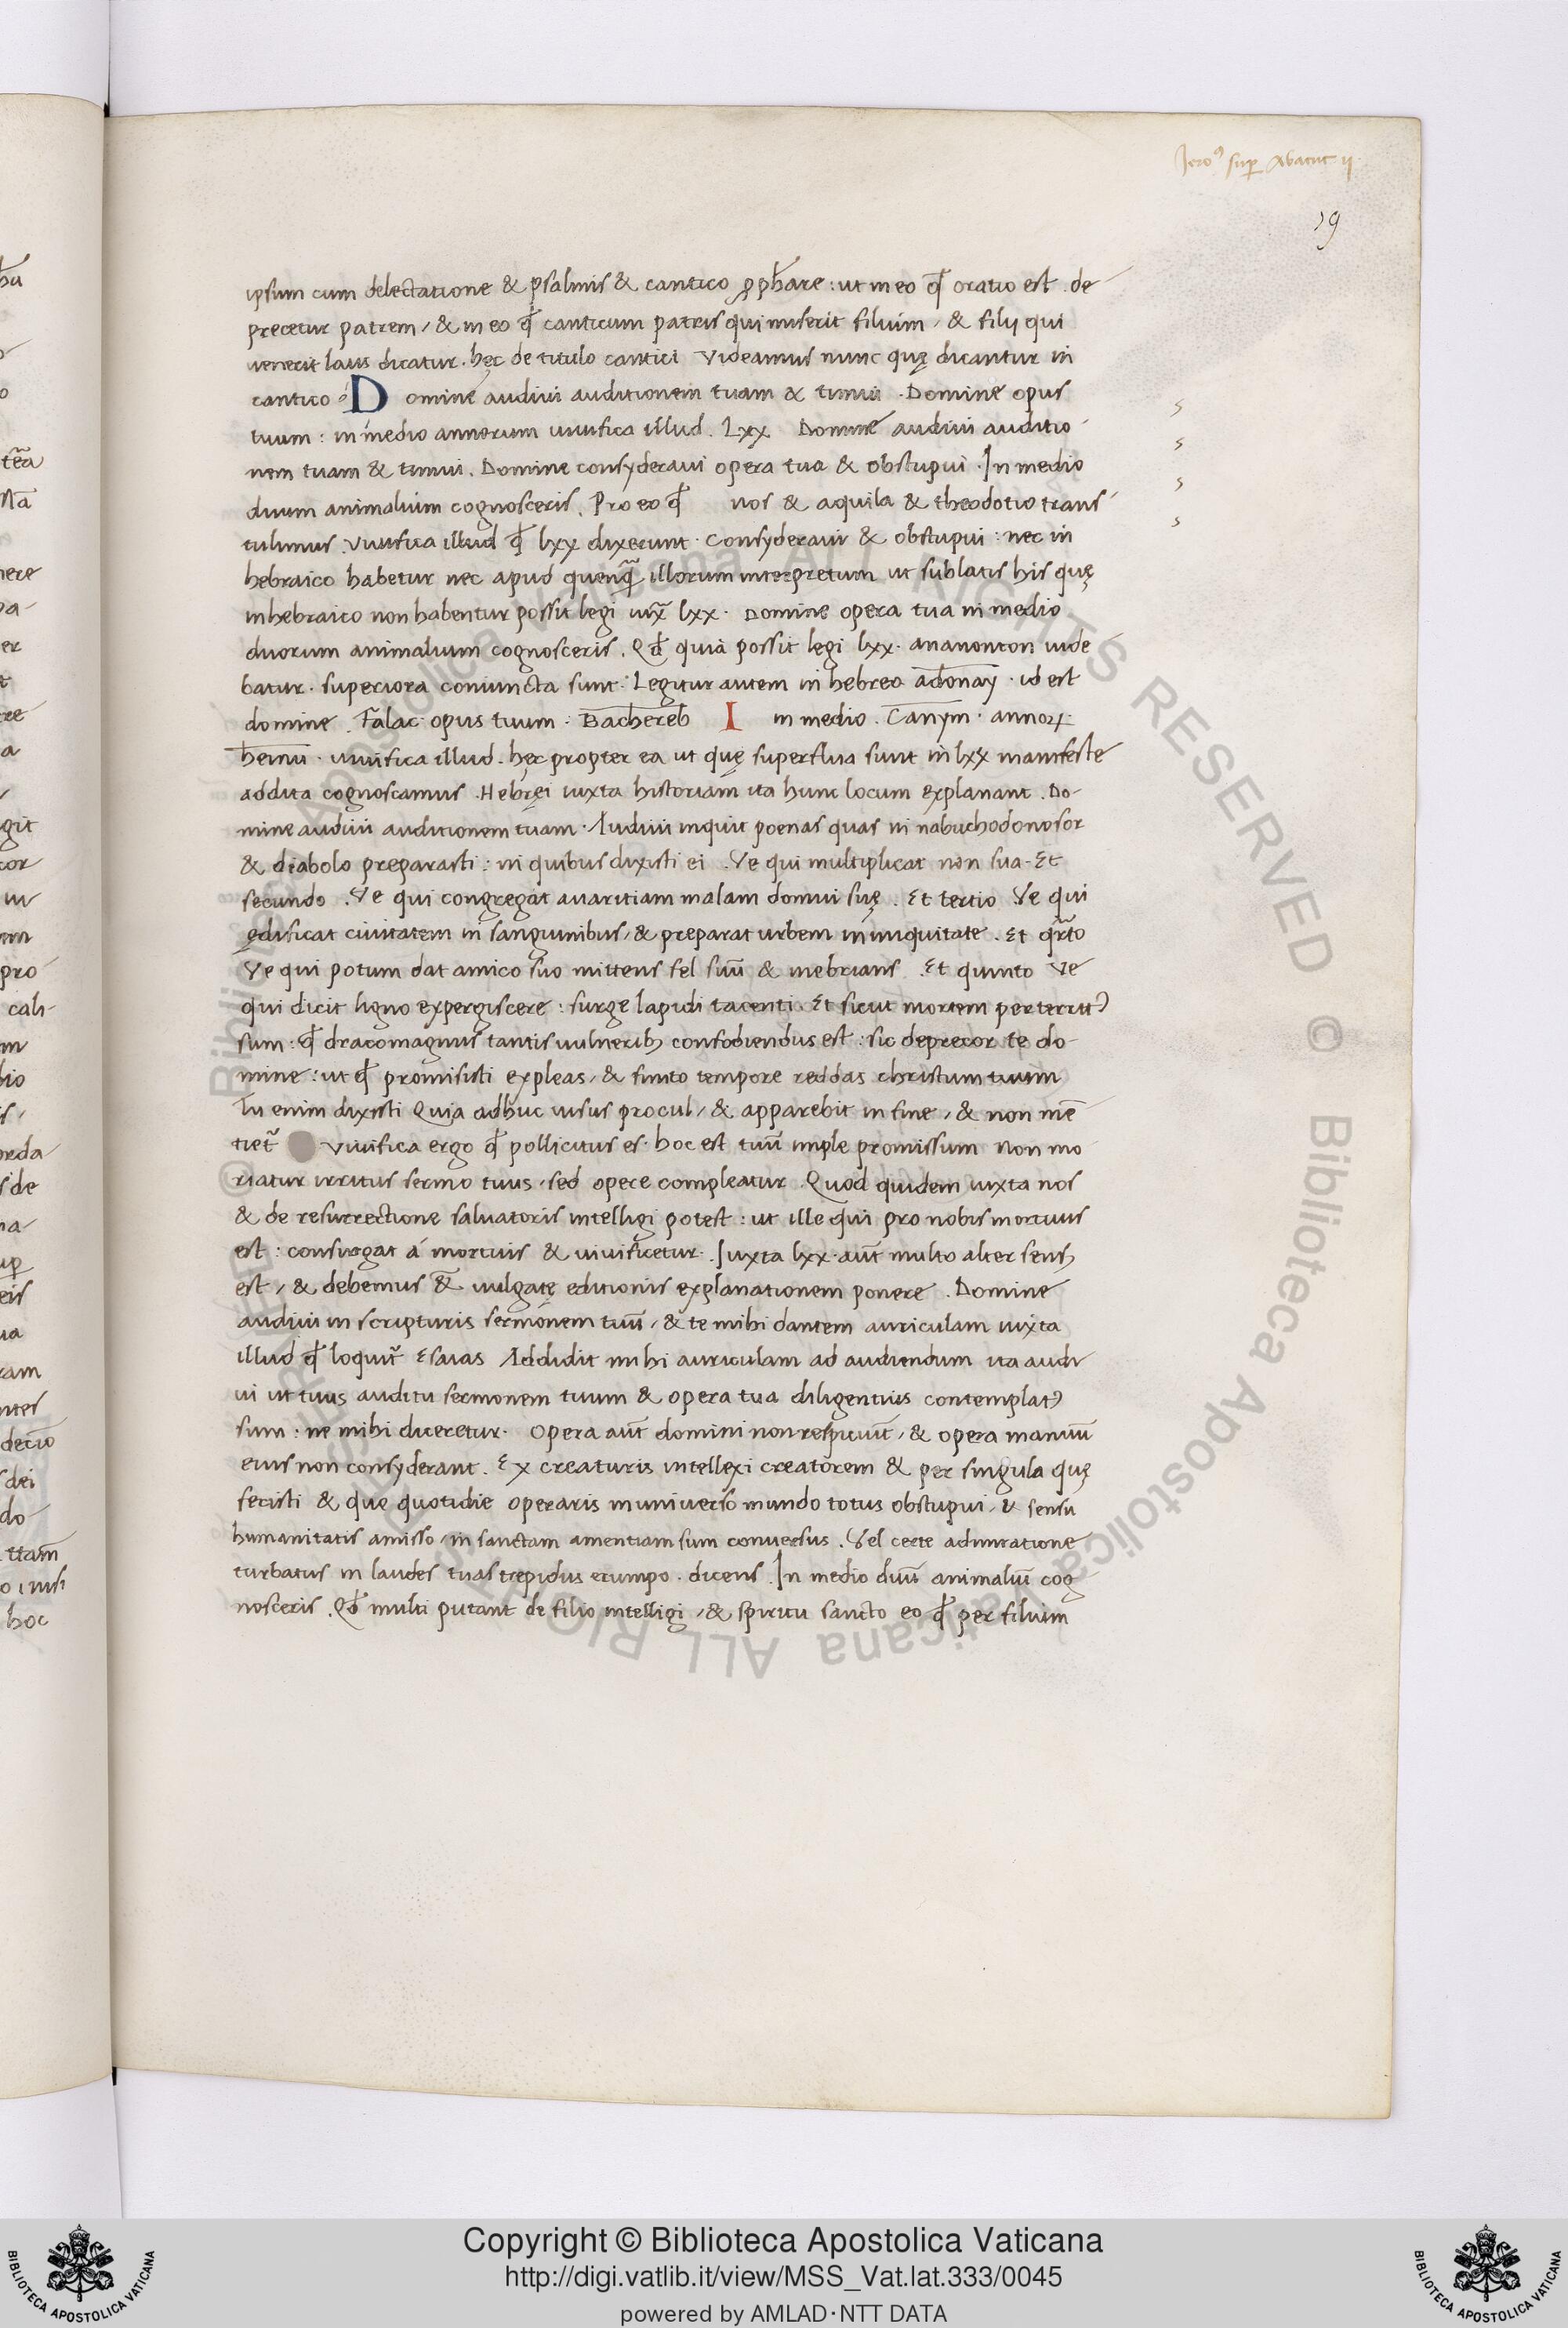 Jero⁹ sup̄ Abacuc ij
19
ipsum cum delectatione & psalmis & cantico ꝓph̄are : ut in eo ꝙ oratio est . de
precetur patrem / & in eo ꝙ canticum patris qui miserit filium / & filij qui
venerit laus dicatur . hęc de titulo cantici Videamus nunc quę dicantur in
cantico . D omine audiui auditionem tuam & timui . Domine opus
tuum : in medio annorum uiuifica illud . Lxx Domine audiui auditio-
nem tuam & timui . Domine consyderaui opera tua & obstupui . In medio
duum animalium cognosceris . Pro eo ꝙ nos & aquila & theodotio trans-
tulimus . Viuifica illud ꝙ lxx dixerunt . Consyderaui & obstupui : nec in
hebraico habetur nec apud quenꝙ̄ illorum interpretum ut sublatis his quę
in hebraico non habentur possit legi iux̄ lxx . Domine opera tua in medio
duorum animalium cognosceris . Qd̄ quia possit legi lxx . ananonton uide
batur . superiora coniuncta sunt . Legitur autem in hebreo adonay . id est
domine . Falac opus tuum . Bachereb I in medio . Canym . annoꝝ .
heinu . uiuifica illud . hęc propter ea ut quę superflua sunt in lxx manifeste
addita cognoscamus . Hebręi iuxta historiam ita hunc locum explanant . Do-
mine audiui auditionem tuam . Audiui inquit poenas quas in nabuchodonosor
& diabolo preparasti : in quibus dixisti ei . Ve qui multiplicat non sua . Et
secundo . Ve qui congregat auaritiam malam domui suę . Et tertio Ve qui
ędificat ciuitatem in sanguinibus / & preparat urbem in iniquitate . Et qr̄to
Ve qui potum dat amico suo mittens fel suū & inebrians . Et quinto Ve
qui dicit ligno expergiscere : surge lapidi tacenti . Et sicut mortem perterrit⁹
sum : ꝙ draco magnus tantis uulnerib; confodiendus est : sic deprecor te do-
mine : ut ꝙ promisisti expleas / & finito tempore reddas christum tuum
Tu enim dixisti Quia adhuc uisus procul / & apparebit in fine / & non mē
tiet̄ Viuifica ergo ꝙ pollicitus es . hoc est tuū imple promissum Non mo
riatur irritus sermo tuus . sed opere compleatur . Quod quidem iuxta nos
& de resurrectione saluatoris intelligi potest : ut ille qui pro nobis mortuus
est : consurgat á mortuis & uiuificetur . Iuxta lxx . aūt multo alter sens⁹
est / & debemus &̄ uulgatę editionis explanationem ponere . Domine
audiui in scripturis sermonem tuū / & te mihi dantem auriculam iuxta
illud ꝙ loquit̄ Esaias Addidit mihi auriculam ad audiendum ita audi
ui ut tuus auditu sermonem tuum & opera tua diligentius contemplat⁹
sum : ne mihi diceretur . Opera aūt domini non respiciūt / & opera manuū
eius non consyderant . Ex creaturis intellexi creatorem & per singula quę
fecisti & que quotidie operaris in uniuerso mundo totus obstupui / & sensu
humanitatis amisso / in sanctam amentiam sum conuersus . Vel certe admiratione
turbatus in laudes tuas trepidus erumpo . dicens . In medio duū animaliū cog-
nosceris . Qd̄ multi putant de filio intelligi / & spiritu sancto eo ꝙ per filium
Copyright © Biblioteca Apostolica Vaticana
http://digi.vatlib.it/view/MSS_Vat.lat.333/0045
powered by AMLAD·NTT DATA
BIBLIOTECA APOSTOLICA VATICANA
BIBLIOTECA APOSTOLICA VATICANA